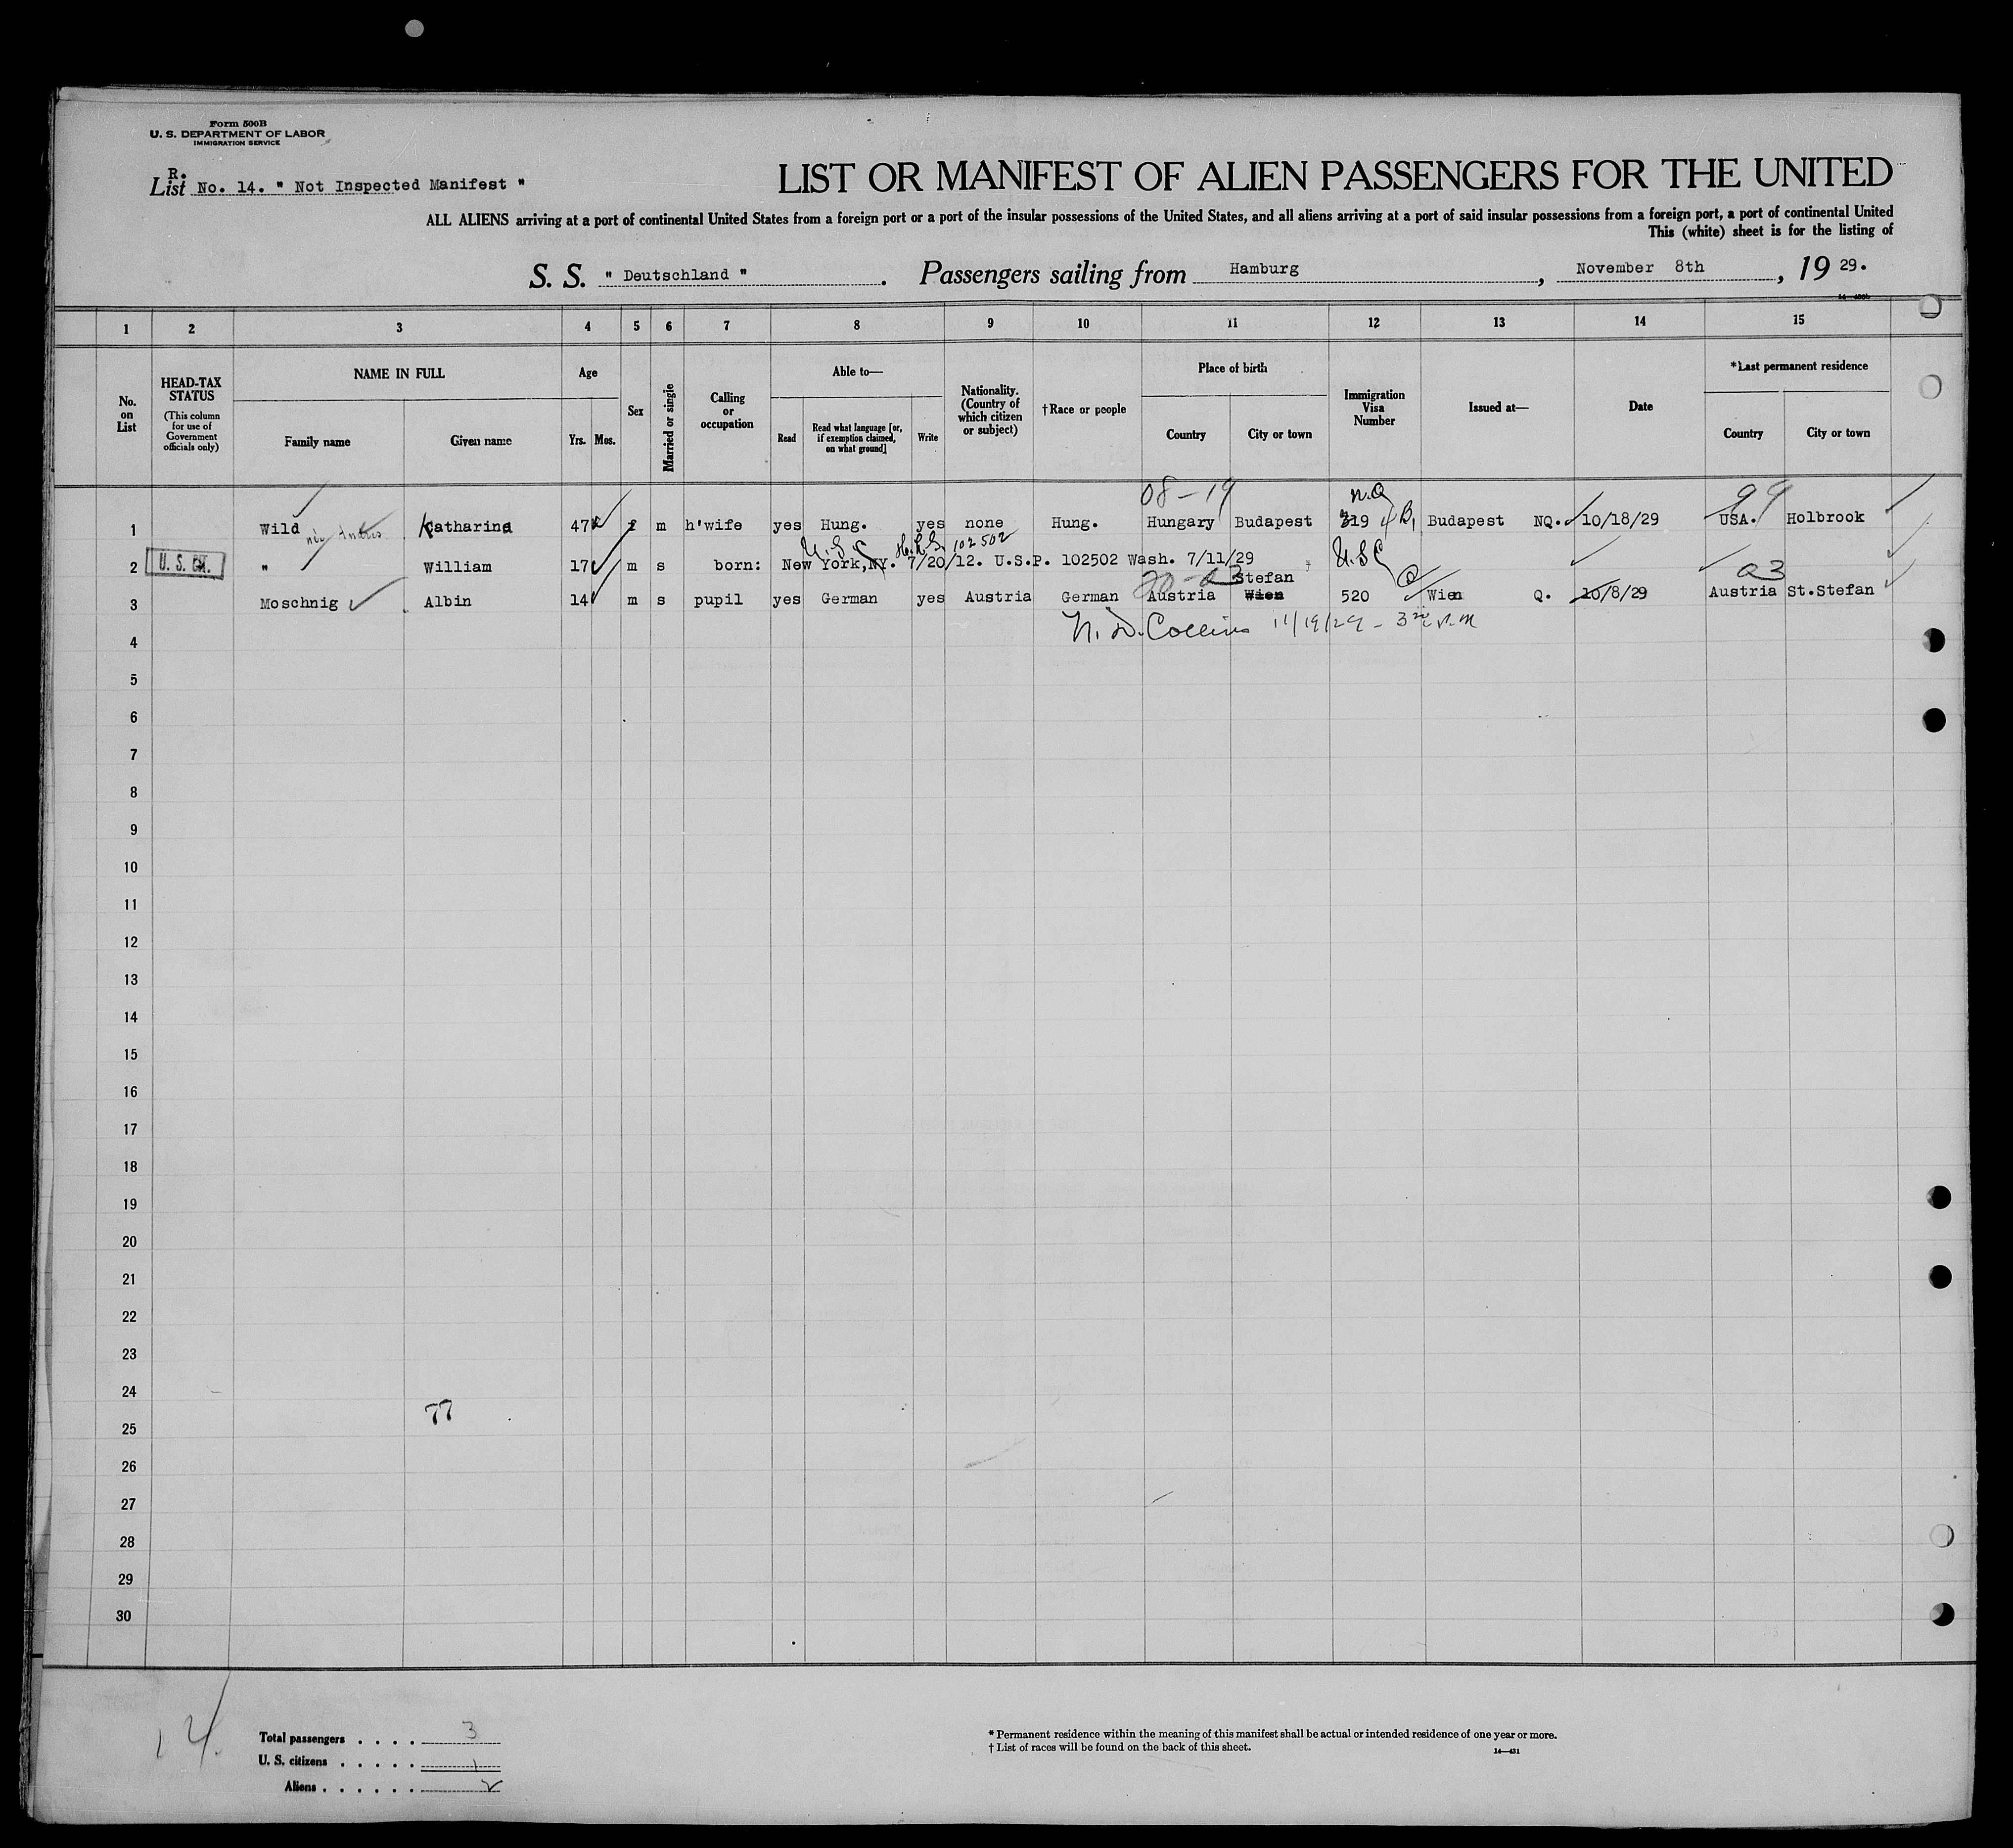 Form 500B
U. S. DEPARTMENT OF LABOR
IMMIGRATION SERVICE
R.
List No. 14. " Not Inspected Manifest "
LIST OR MANIFEST OF ALIEN PASSENGERS FOR THE UNITED
ALL ALIENS arriving at a port of continental United States from a foreign port or a port of the insular possessions of the United States, and all aliens arriving at a port of said insular possessions from a foreign port, a port of continental United
This (white) sheet is for the listing of
S. S. " Deutschland ". Passengers sailing from Hamburg, November 8th, 19 29.
1 2 3 4 5 6 7 8 9 10 11 12 13 14 15
No. on List
HEAD-TAX STATUS
(This column for use of Government officials only)
NAME IN FULL
Family name Given name
Age
Yrs. Mos.
Sex
Married or single
Calling or occupation
Able to—
Read Read what language [or, if exemption claimed, on what ground] Write
Nationality. (Country of which citizen or subject)
†Race or people
Place of birth
Country City or town
Immigration Visa Number
Issued at—
Date
*Last permanent residence
Country City or town
08-19 N.Q 99
1 Wild Katharina 47 f m h'wife yes Hung. yes none Hung. Hungary Budapest 319 Budapest NQ. 10/18/29 USA. Holbrook
U.S.C. 102502 U.S.C
2 " William 17 m s born: New York,NY. 7/20/12. U.S.P. 102502 Wash. 7/11/29
Stefan
3 Moschnig Albin 14 m s pupil yes German yes Austria German Austria Wien 520 Wien Q. 10/8/29 Austria St.Stefan
N. D. Collins 11/19/29 -
4
5
6
7
8
9
10
11
12
13
14
15
16
17
18
19
20
21
22
23
24
77
25
26
27
28
29
30
14
Total passengers . . . . 3
U. S. citizens . . . . . 1
Aliens . . . . . . 2
* Permanent residence within the meaning of this manifest shall be actual or intended residence of one year or more.
† List of races will be found on the back of this sheet.
14—431